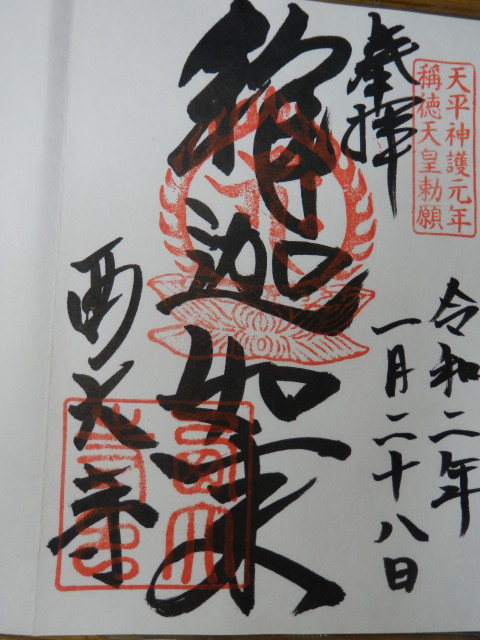 天平神護元年
稱徳天皇勅願
奉拝
令和二年
一月二十八日
釋迦如来
西大寺